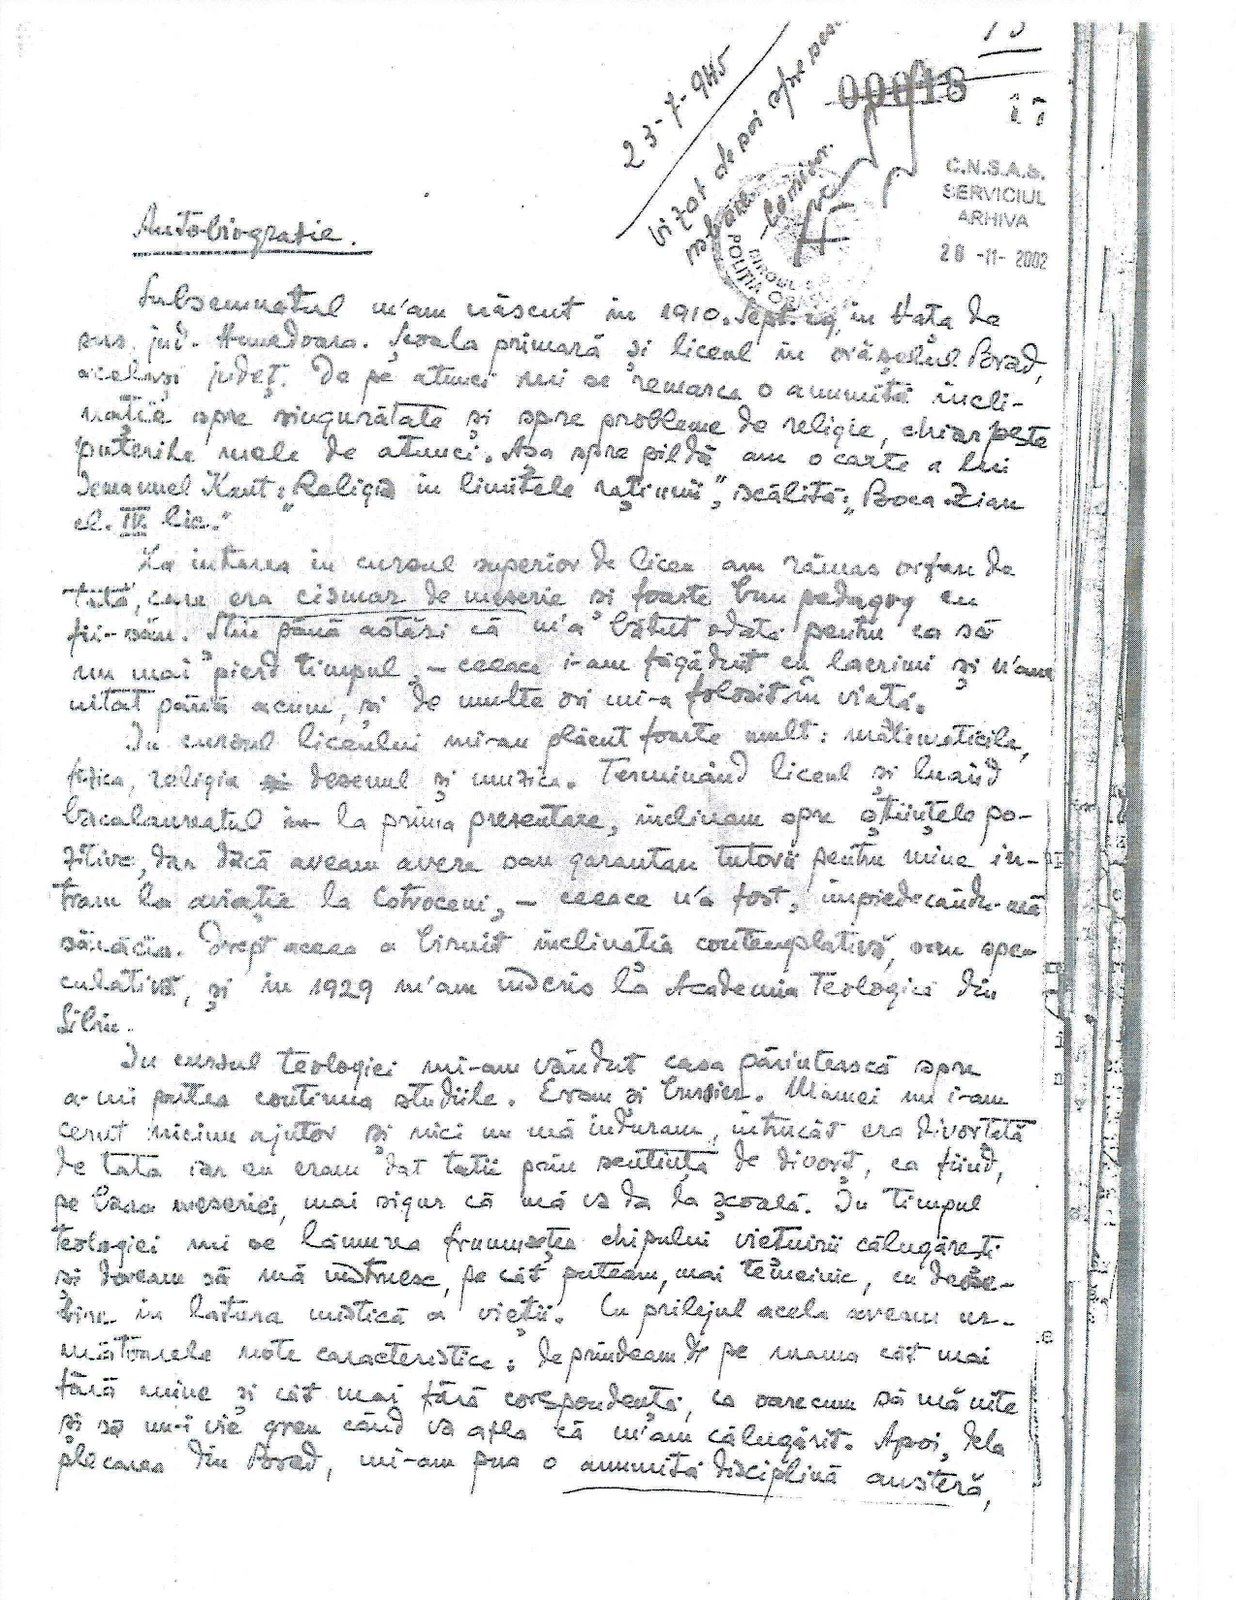 23-7-945
Vizat de noi spre
Comisar
00018
C.N.S.A.S.
SERVICIUL
ARHIVA
28 -11- 2002
POLIȚIA
Autobiografie.
Subsemnatul m'am născut în 1910. Sept. 29, în Vața de
sus jud. Hunedoara. Școala primară și liceul în orășelul Brad,
același județ. De pe atunci mi se remarca o anumită încli-
nație spre singurătate și spre probleme de religie, chiar peste
puterile mele de atunci. Așa spre pildă am o carte a lui
Immanuel Kant: "Religia în limitele rațiunii", iscălită: "Boca Zian
cl. IV. lic."
La intarea in cursul superior de liceu am rămas orfan de
tată, care era cismar de meserie și foarte bun pedagog cu
fii-său. Știu până astăzi că m'a bătut odată pentru ca să
nu mai pierd timpul, - ceeace i-am făgăduit cu lacrimi și n'am
uitat până acum, și de multe ori mi-a folosit în viață.
In cursul liceului mi-au plăcut foarte mult: matematicile,
fizica, religia desenul și muzica. Terminând liceul și luând
bacalaureatul la prima prezentare, inclinam spre științele po-
zitive, dar dacă aveam avere sau garantau tutorii pentru mine in-
tram la aviație la Cotroceni, - ceeace n'a fost, impiedecându-mă
sărăcia. Drept aceea a biruit inclinația contemplativă, sau spe-
culativă, și in 1929 m'am inscris la Academia Teologică din
Sibiu.
In cursul teologiei mi-am vândut casa părintească spre
a-mi putea continua studiile. Eram și bursier. Mamei nu i-am
cerut niciun ajutor și nici nu mă înduram, întrucât era divorțată
de tata iar eu eram dat tatii prin sentința de divorț, ca fiind,
pe baza meseriei, mai sigur că mă va da la școală. In timpul
teologiei mi se lămurea frumsețea chipului viețuirii călugărești
și doream să mă instruesc, pe cât puteam, mai temeinic, cu deose-
bire in latura mistică a vieții. Cu prilejul acela aveam ur-
mătoarele note caracteristice: deprindeam pe mama cât mai
fără mine și cât mai fără corespondență, ca oarecum să mă uite
și să nu-i vie greu când va afla că m'am călugărit. Apoi, dela
plecarea din Brad, mi-am pus o anumită disciplină austeră,